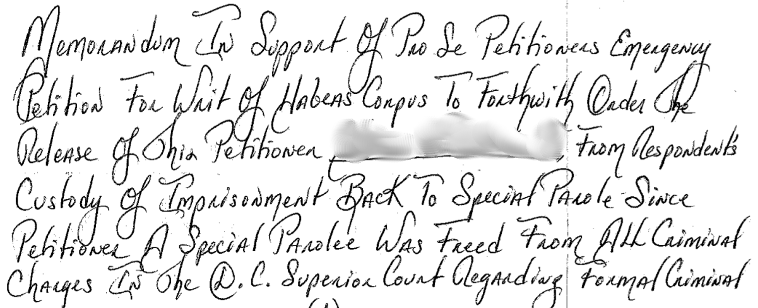 Memorandum In Support Of Pro Se Petitioners Emergency
Petition For Writ Of Habeas Corpus To Forthwith Order The
Release Of This Petitioner From Respondent's
Custody Of Imprisonment Back To Special Parole Since
Petitioner A Special Parolee Was Freed From All Criminal
Charges In The D.C. Superior Court Regarding Formal Criminal
(1)